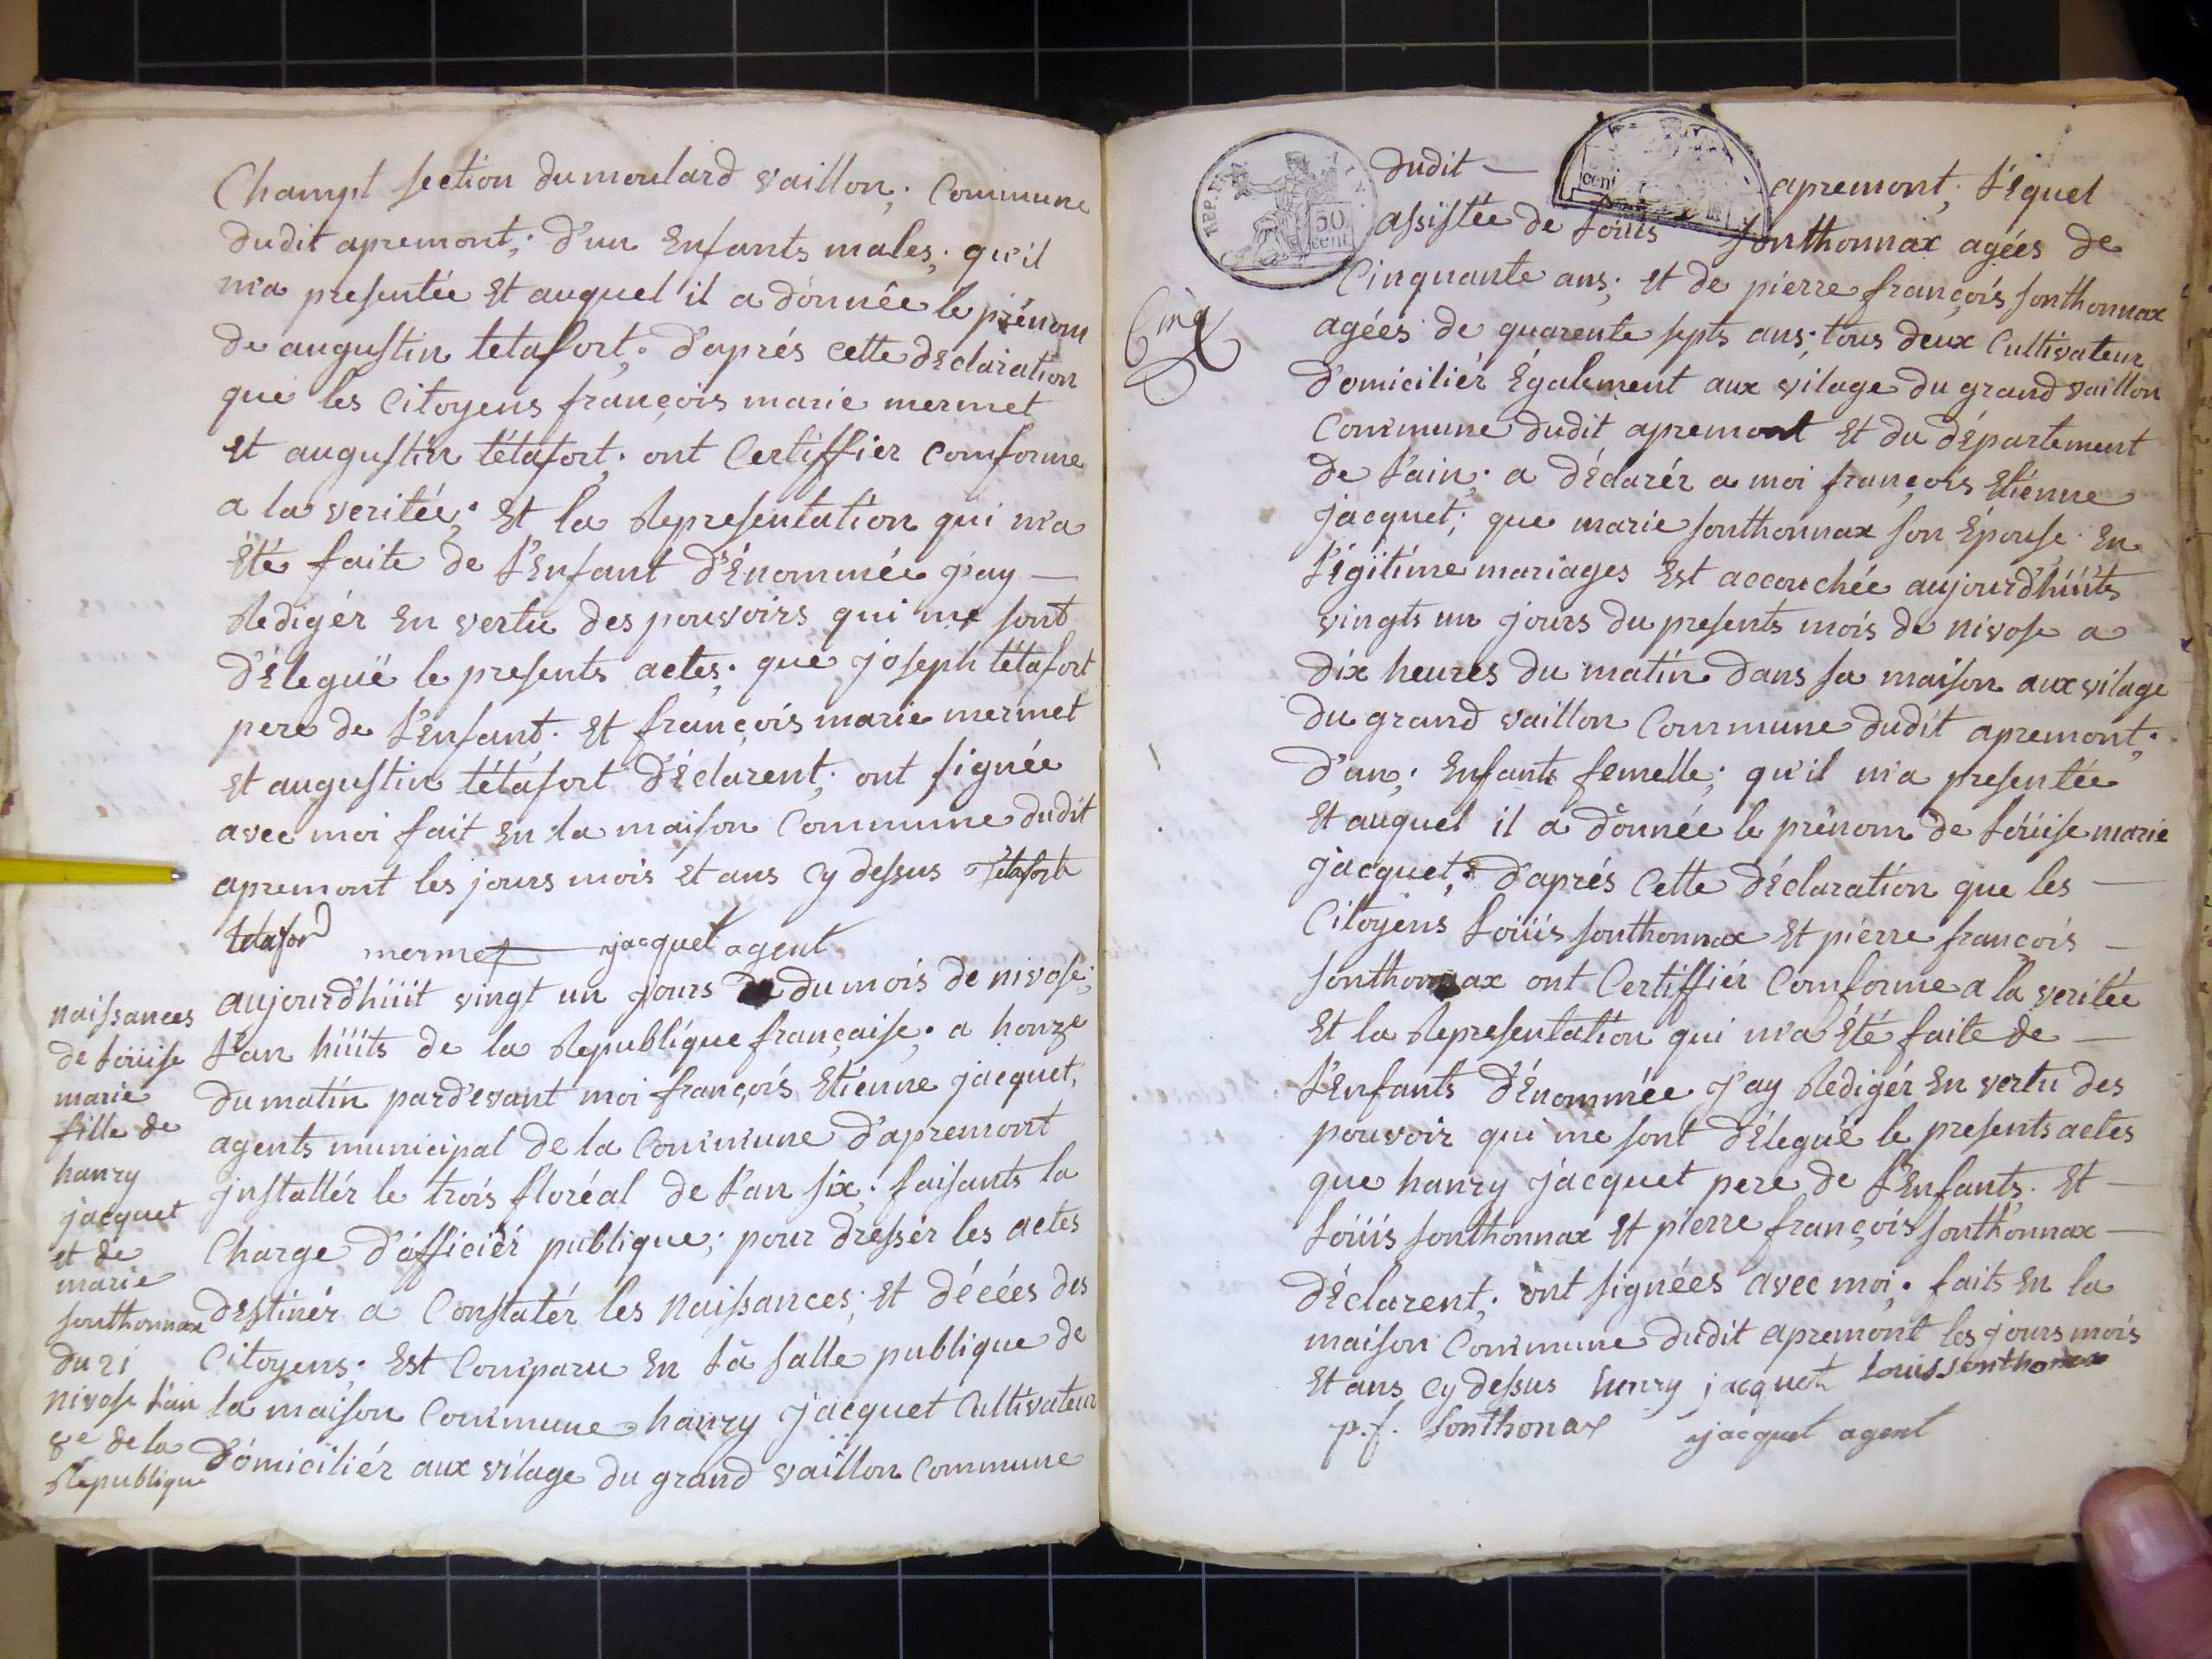 Champt section du moulard vaillon; Commune
dudit apremont; d'un Enfants males; qu'il
m'a presentée Et auquel il a donnée le prénom
de augustin tetafort; d'aprés cette déclaration
que les Citoyens françois marie mermet
et augustin tétafort; ont Certiffier comforme
a la veritée; Et la Representation qui m'a
Été faite de l'Enfant d'Énommée j'ay —
Redigér En vertu des pouvoirs qui me sont
d'Élegué le presents actes; que joseph tétafort
pere de l'Enfant. Et françois marie mermet
Et augustin tétafort d'Éclarent; ont signée
avec moi fait En la maison Commune dudit
apremont les jours mois Et ans Cy dessus Tetafort
tetafor mermet jacquet agent
naissances
de Loüise
marie
fille de
hanry
jacquet
et de
marie
sonthonnax
du 21
nivose l'an
8e de la
Republique
aujourd'hüit vingt un jours du mois de nivose;
l'an hüits de la Republique française; a honze
du matin pard'evant moi françois Etienne jacquet,
agents municipal de la Commune d'apremont
jnstallér le trois floréal de l'an six; faisants la
Charge d'officiér publique; pour dressér les actes
destinér a Constatér les naissances; Et décées des
Citoyens; Est Comparu En la salle publique de
la maison Commune hanry jacquet Cultivateur
d'omiciliér aux vilage du grand vaillon Commune
REP. FRA.
50
cent
cent
Cinq
dudit — apremont; l'equel
assistée de Loüis Sonthonnax agées de
Cinquante ans; et de pierre françois sonthonnax
agées de quarente septs ans; tous deux Cultivateur
d'omiciliér Également aux vilage du grand vaillon
Commune dudit apremont Et du d'Epartement
de l'ain; a d'éclarér a moi françois Etienne
jacquet; que marie sonthonnax son Épouse. En
l'égitime mariages Est accouchée aujourd'hüits
vingts un jours du presents mois de nivose a
dix heures du matin dans sa maison aux vilage
du grand vaillon Commune dudit apremont;
d'un; Enfants femelle; qu'il m'a presentée
Et auquel il a donnée le prénom de Loüise marie
jacquet; d'aprés Cette d'Éclaration que les —
Citoyens Loüis sonthonnax Et piérre françois —
sonthonnax ont Certiffiér Comforme a la veritée
Et la Representation qui m'a Été faite de —
l'Enfants d'Énommée j'ay Redigér En vertu des
pouvoir qui me sont d'Elegué le presents actes
que hanry jacquet pere de l'Enfants. Et —
Loüis sonthonnax Et pierre françois sonthonnax —
d'Éclarent; ont signées avec moi; faits En la
maison Commune dudit apremont les jours mois
Et ans Cy dessus henry jacquet Louis sonthonax
p.f. Sonthonax jacquet agent